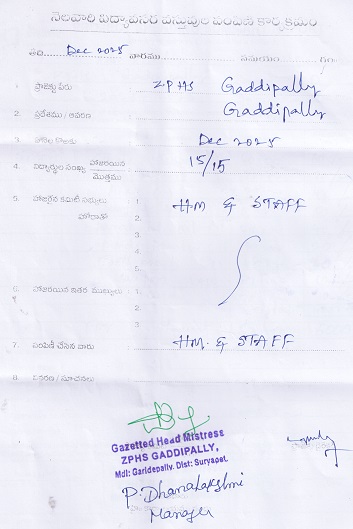 నెలవారి విద్యావసర వస్తువుల పంపిణి కార్యక్రమం
తేది Dec 2025 వారము సమయం గం॥
1. ప్రాజెక్టు పేరు ZPHS Gaddipally
2. ప్రదేశము / ఆవరణ Gaddipally
3. Dec 2025
4. విద్యార్థుల సంఖ్య హాజరయిన / మొత్తము 15/15
5. హాజరైన కమిటీ సభ్యులు : 1. HM & STAFF
హోదాతో 2.
3.
4.
5.
6. హాజరయిన ఇతర ముఖ్యులు : 1.
2.
3.
7. పంపిణీ చేసిన వారు HM. & STAFF
8. వివరణ / సూచనలు
Gazetted Head Mistress
ZPHS GADDIPALLY,
Mdl: Garidepally. Dist: Suryapet.
P. Dhanalakshmi
Manager